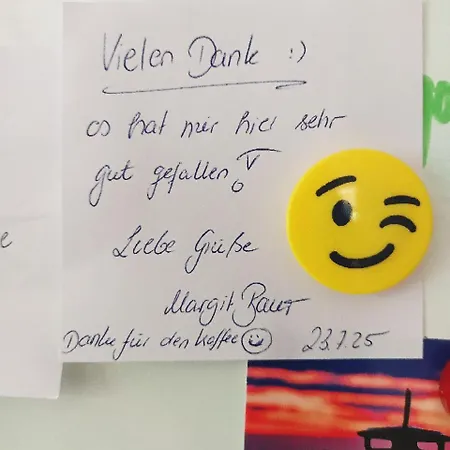 Vielen Dank :)
es hat mir hier sehr
gut gefallen!
Liebe Grüße
Margit
Danke für den Kaffee ☺ 23.7.25